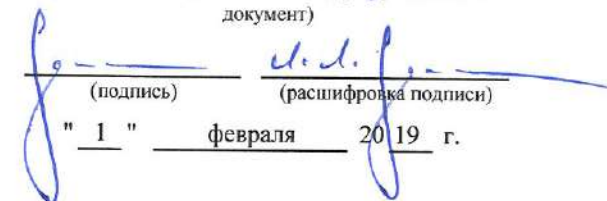 документ)
(подпись) (расшифровка подписи)
" 1 " февраля 20 19 г.